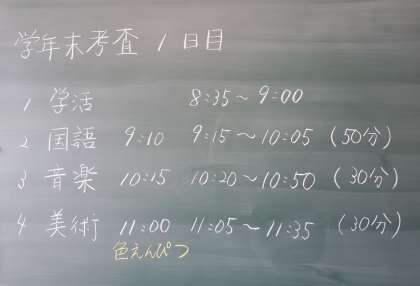 学年末考査 1日目
1 学活 8:35～9:00
2 国語 9:10 9:15～10:05 (50分)
3 音楽 10:15 10:20～10:50 (30分)
4 美術 11:00 11:05～11:35 (30分)
色えんぴつ